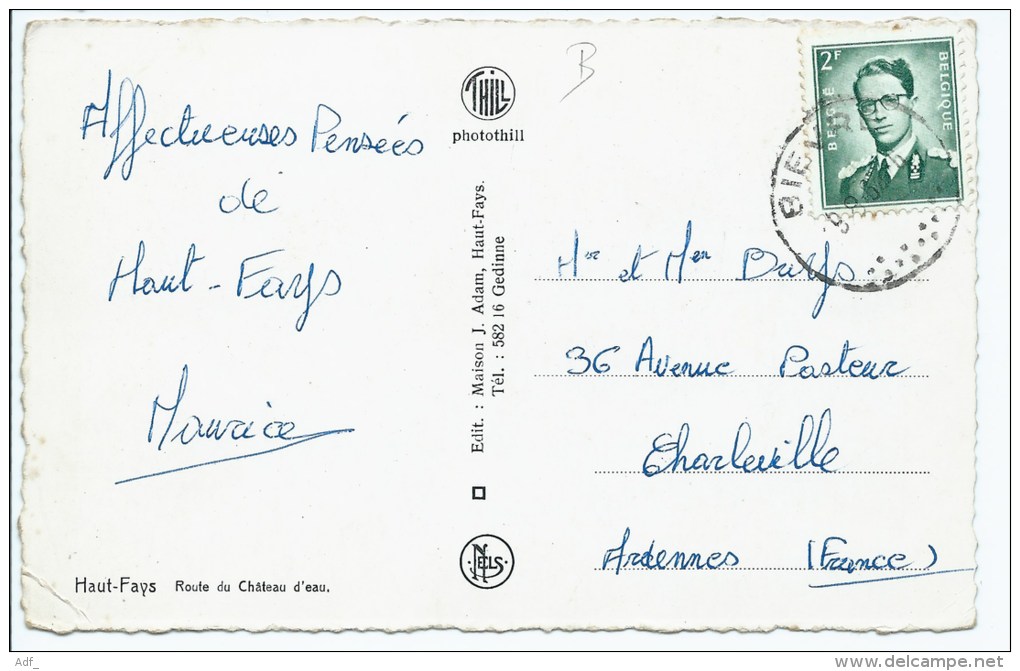 Affectueuses Pensées
de
Haut-Fays
Maurice
Haut-Fays Route du Château d'eau.
THILL
photothill
Edit. : Maison J. Adam, Haut-Fays.
Tél. : 582 16 Gedinne
NELS
B
2F
BELGIË
BELGIQUE
BIEVRE
Mr et Men
36 Avenue Pasteur
Charleville
Ardennes (France)
Adf_
www.delcampe.net